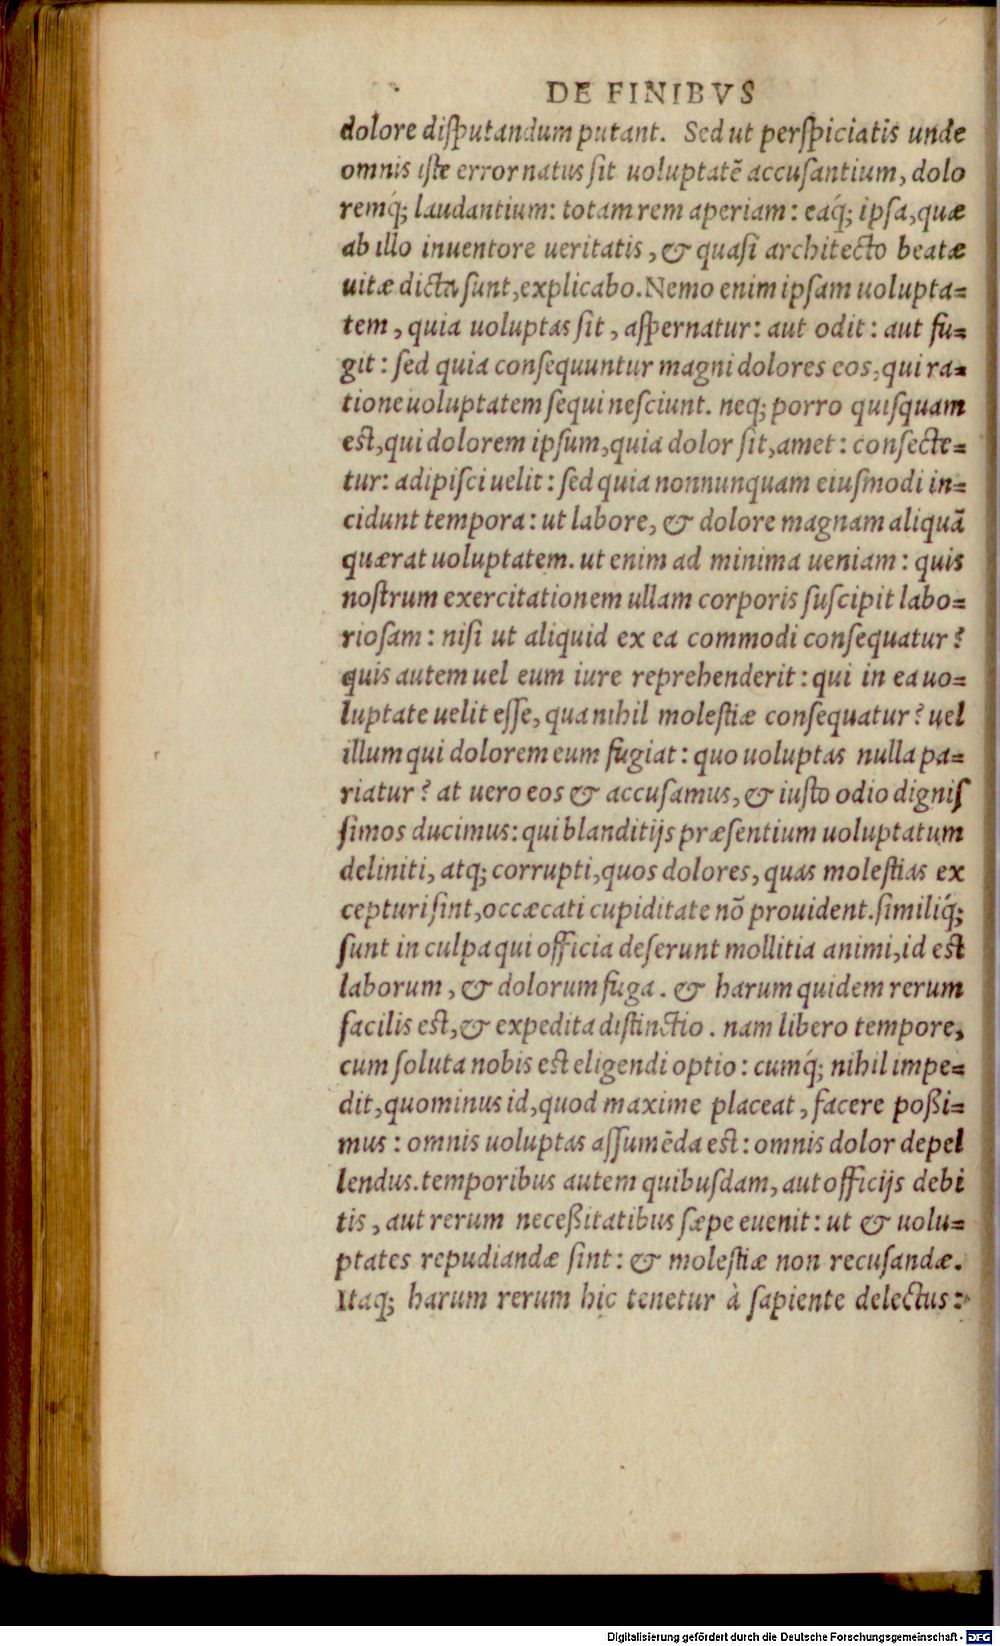 DE FINIBVS
dolore diſputandum putant. Sed ut perſpiciatis unde
omnis iſte error natus ſit uoluptatē accuſantium, dolo
remq́; laudantium: totam rem aperiam: eaq́; ipſa, quæ
ab illo inuentore ueritatis, & quaſi architecto beatæ
uitæ dicta ſunt, explicabo. Nemo enim ipſam uolupta=
tem, quia uoluptas ſit, aſpernatur: aut odit: aut fu=
git: ſed quia conſequuntur magni dolores eos, qui ra=
tione uoluptatem ſequi neſciunt. neq; porro quiſquam
est, qui dolorem ipſum, quia dolor ſit, amet: conſecte=
tur: adipiſci uelit: ſed quia nonnunquam eiuſmodi in=
cidunt tempora: ut labore, & dolore magnam aliquā
quærat uoluptatem. ut enim ad minima ueniam: quis
noſtrum exercitationem ullam corporis ſuſcipit labo=
rioſam: niſi ut aliquid ex ea commodi conſequatur?
quis autem uel eum iure reprehenderit: qui in ea uo=
luptate uelit eſſe, quam nihil moleſtiæ conſequatur? uel
illum qui dolorem eum fugiat: quo uoluptas nulla pa=
riatur? at uero eos & accuſamus, & iuſto odio digniſ
ſimos ducimus: qui blanditijs præſentium uoluptatum
deliniti, atq; corrupti, quos dolores, quas moleſtias ex
cepturi ſint, occæcati cupiditate nō prouident. ſimiliq́;
ſunt in culpa qui officia deſerunt mollitia animi, id eſt
laborum, & dolorum fuga. & harum quidem rerum
facilis eſt, & expedita diſtinctio. nam libero tempore,
cum ſoluta nobis eſt eligendi optio: cumq́; nihil impe=
dit, quominus id, quod maxime placeat, facere poßi=
mus: omnis uoluptas aſſumēda eſt: omnis dolor depel
lendus. temporibus autem quibuſdam, aut officijs debi
tis, aut rerum neceßitatibus ſæpe euenit: ut & uolu=
ptates repudiandæ ſint: & moleſtiæ non recuſandæ.
Itaq; harum rerum hic tenetur à ſapiente delectus:
Digitalisierung gefördert durch die Deutsche Forschungsgemeinschaft - DFG